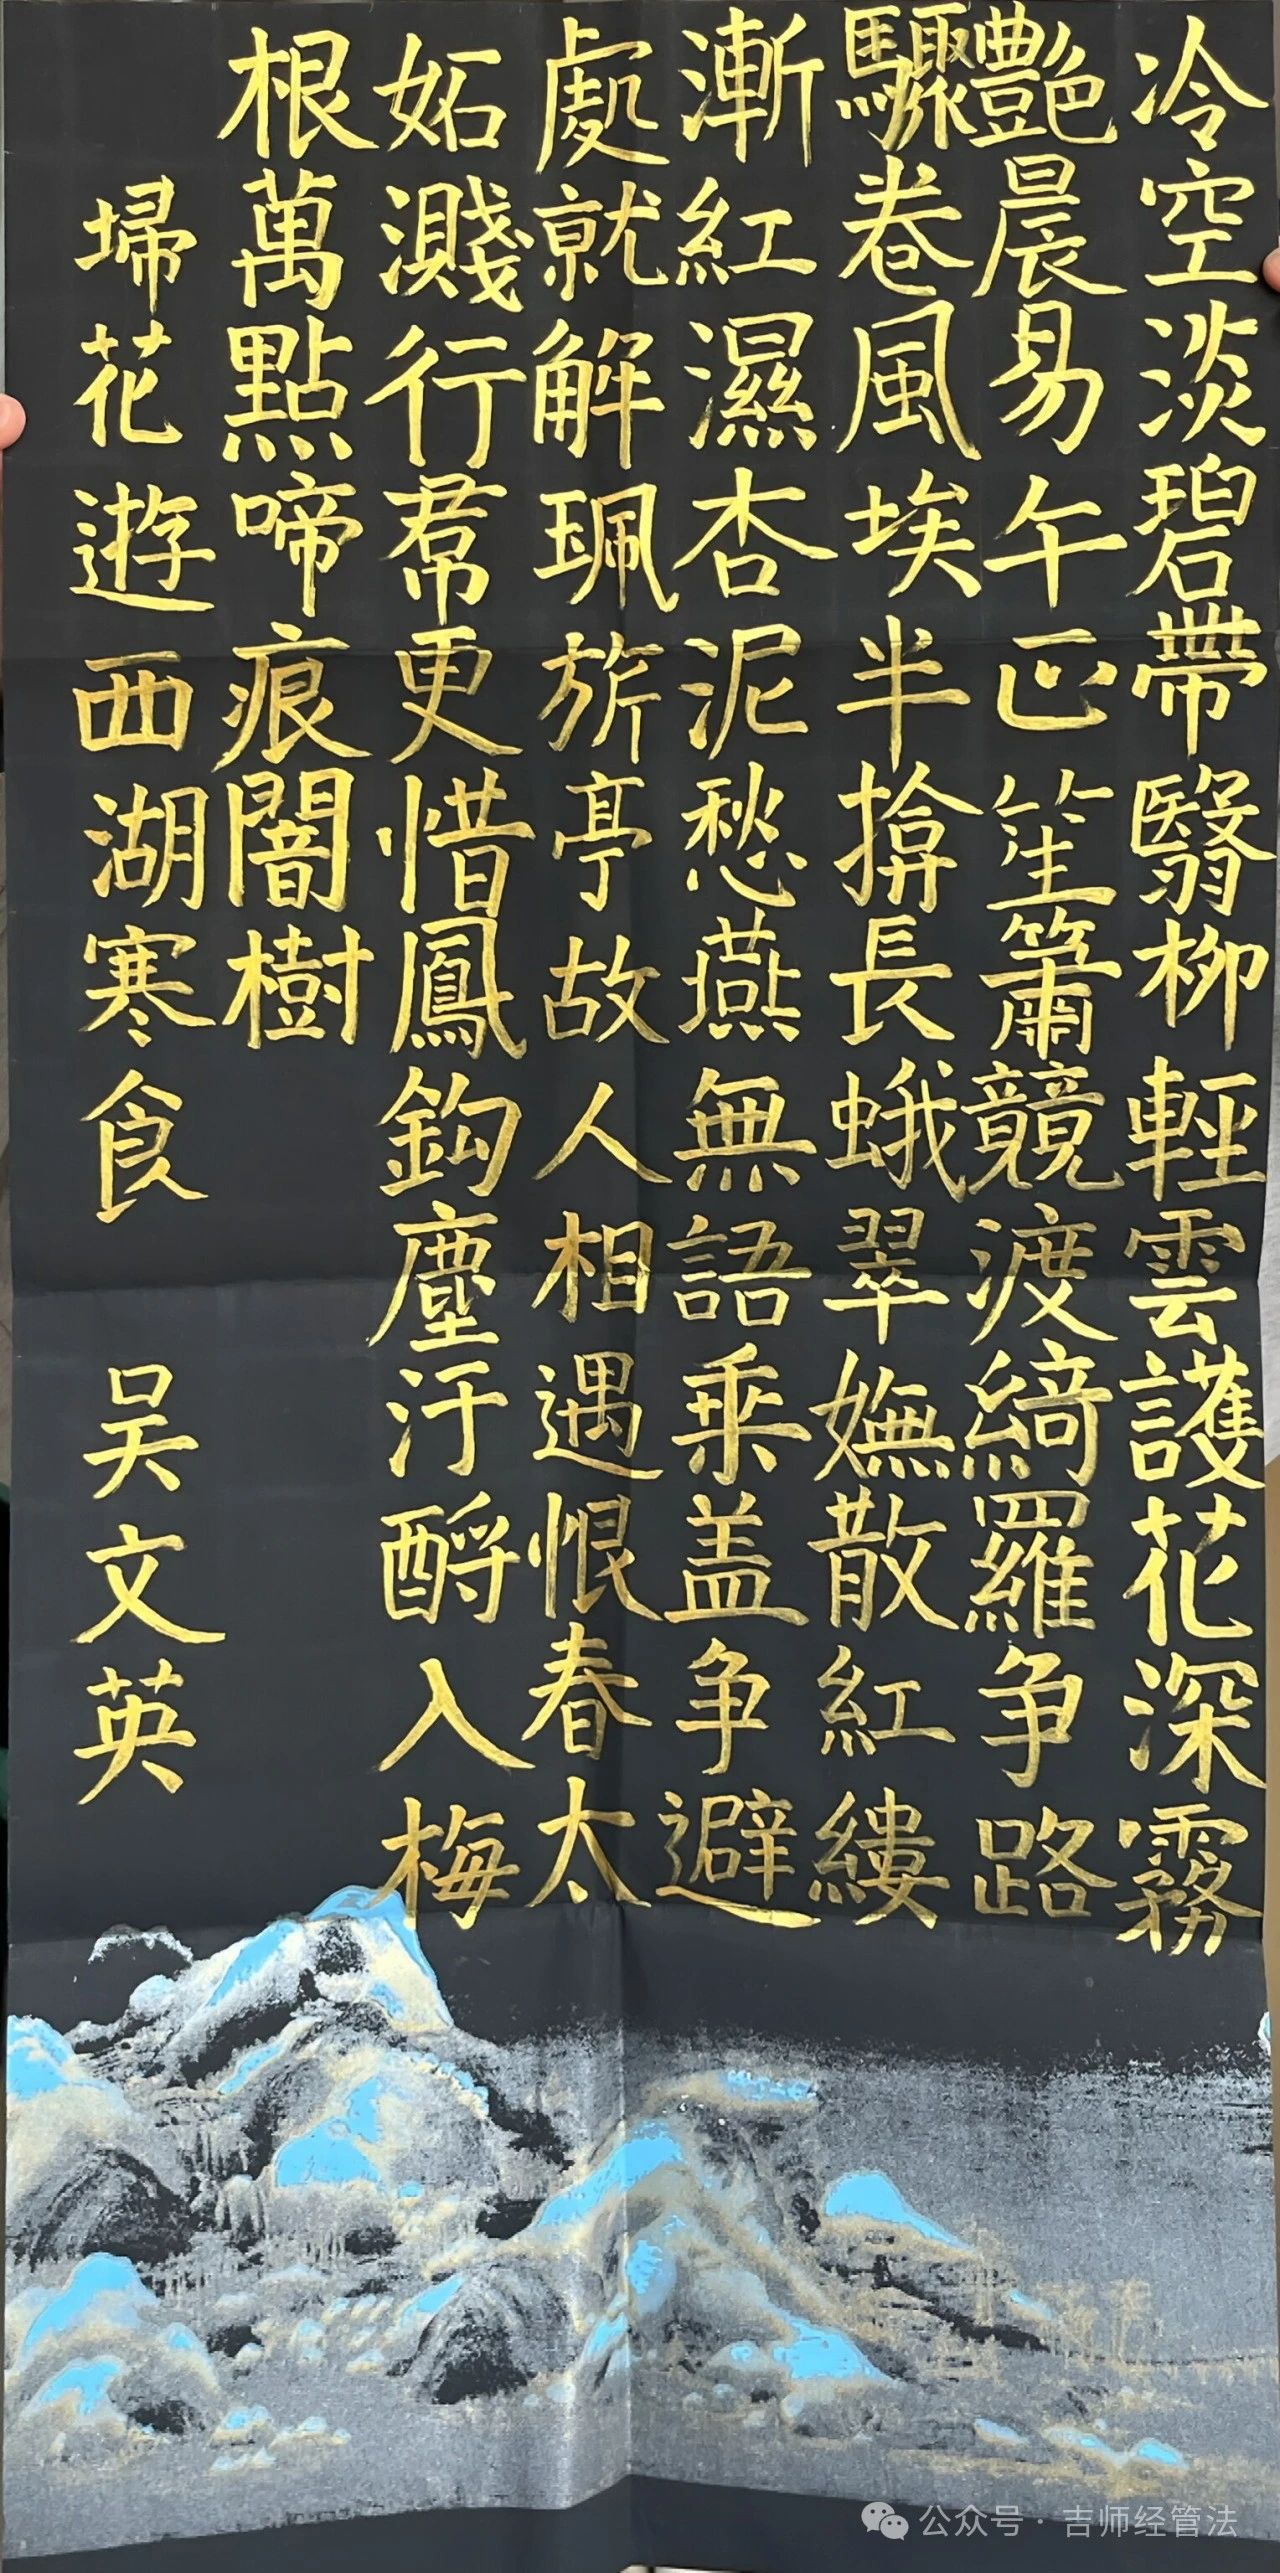 冷空淡碧帶翳柳輕雲護花深霧
艷晨易午正笙簫競渡綺羅争路
驟卷風埃半掩長蛾翠嫵散紅縷
漸紅濕杏泥愁燕無語乘盖争避
處就解珮旂亭故人相遇恨春太
妬濺行帬更惜鳳鈎塵汙酹入梅
根萬點啼痕闇樹
埽花遊西湖寒食 吴文英
公众号·吉师经管法